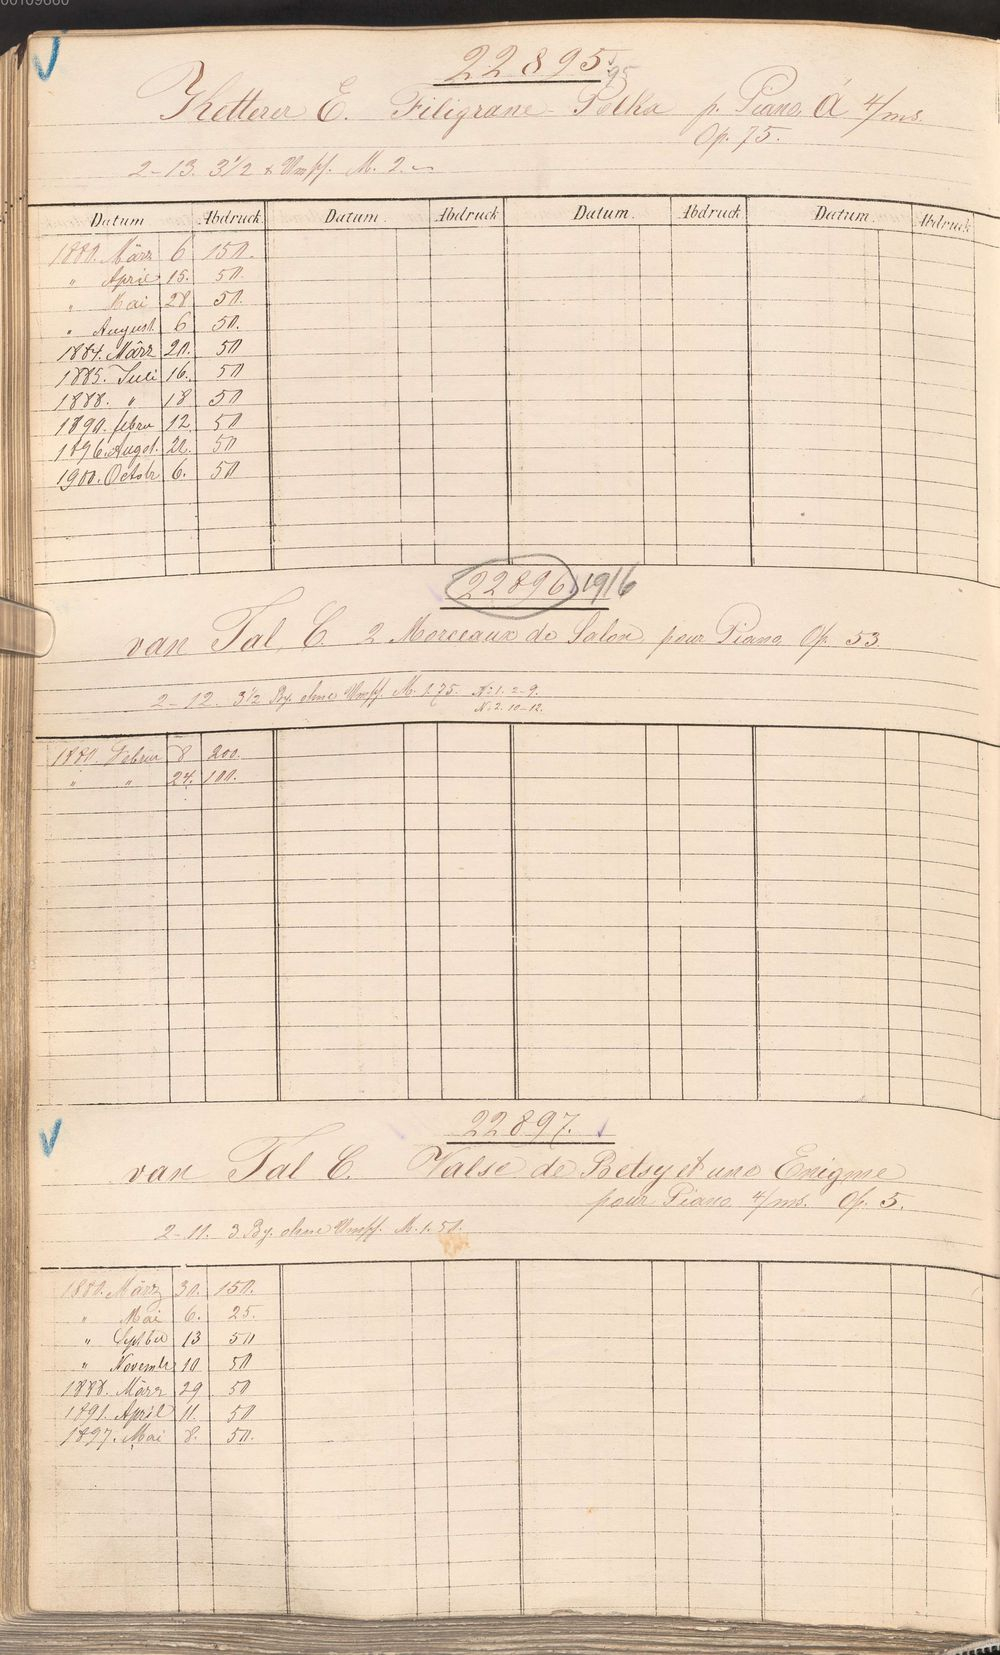 00109600
22895.
95
Ketterer E. Filigrane-Polka p. Piano à 4/ms.
Op. 75.
2-13. 3 1/2 Umschl. M. 2.–
Datum Abdruck Datum. Abdruck Datum. Abdruck Datum. Abdruck
1880. März 6 150.
" April 15. 50.
" Mai 28 50.
" August 6 50.
1884. März 20. 50
1885. Juli 16. 50
1888. " 18 50
1890. febru 12. 50
1896. August. 22. 50
1900. Octobr 6. 50
22896 1916
van Tal, C. 2 Morceaux de Salon pour Piano Op. 53.
2-12. 3 1/2 Bg. ohne Umschl. M. 1.75. No. 1. 2-9.
No. 2. 10-12.
1880. Februr 8 200.
" " 24. 100.
22897.
van Tal C. Valse de Betsy et une Enigme
pour Piano 4/ms. Op. 5.
2-11. 3 Bg. ohne Umschl. M. 1.50.
1880. März 30. 150.
" Mai 6. 25.
" Septbr 13 50
" Novembr 10 50
1888. März 29 50
1891. April 11. 50
1897. Mai 8. 50.